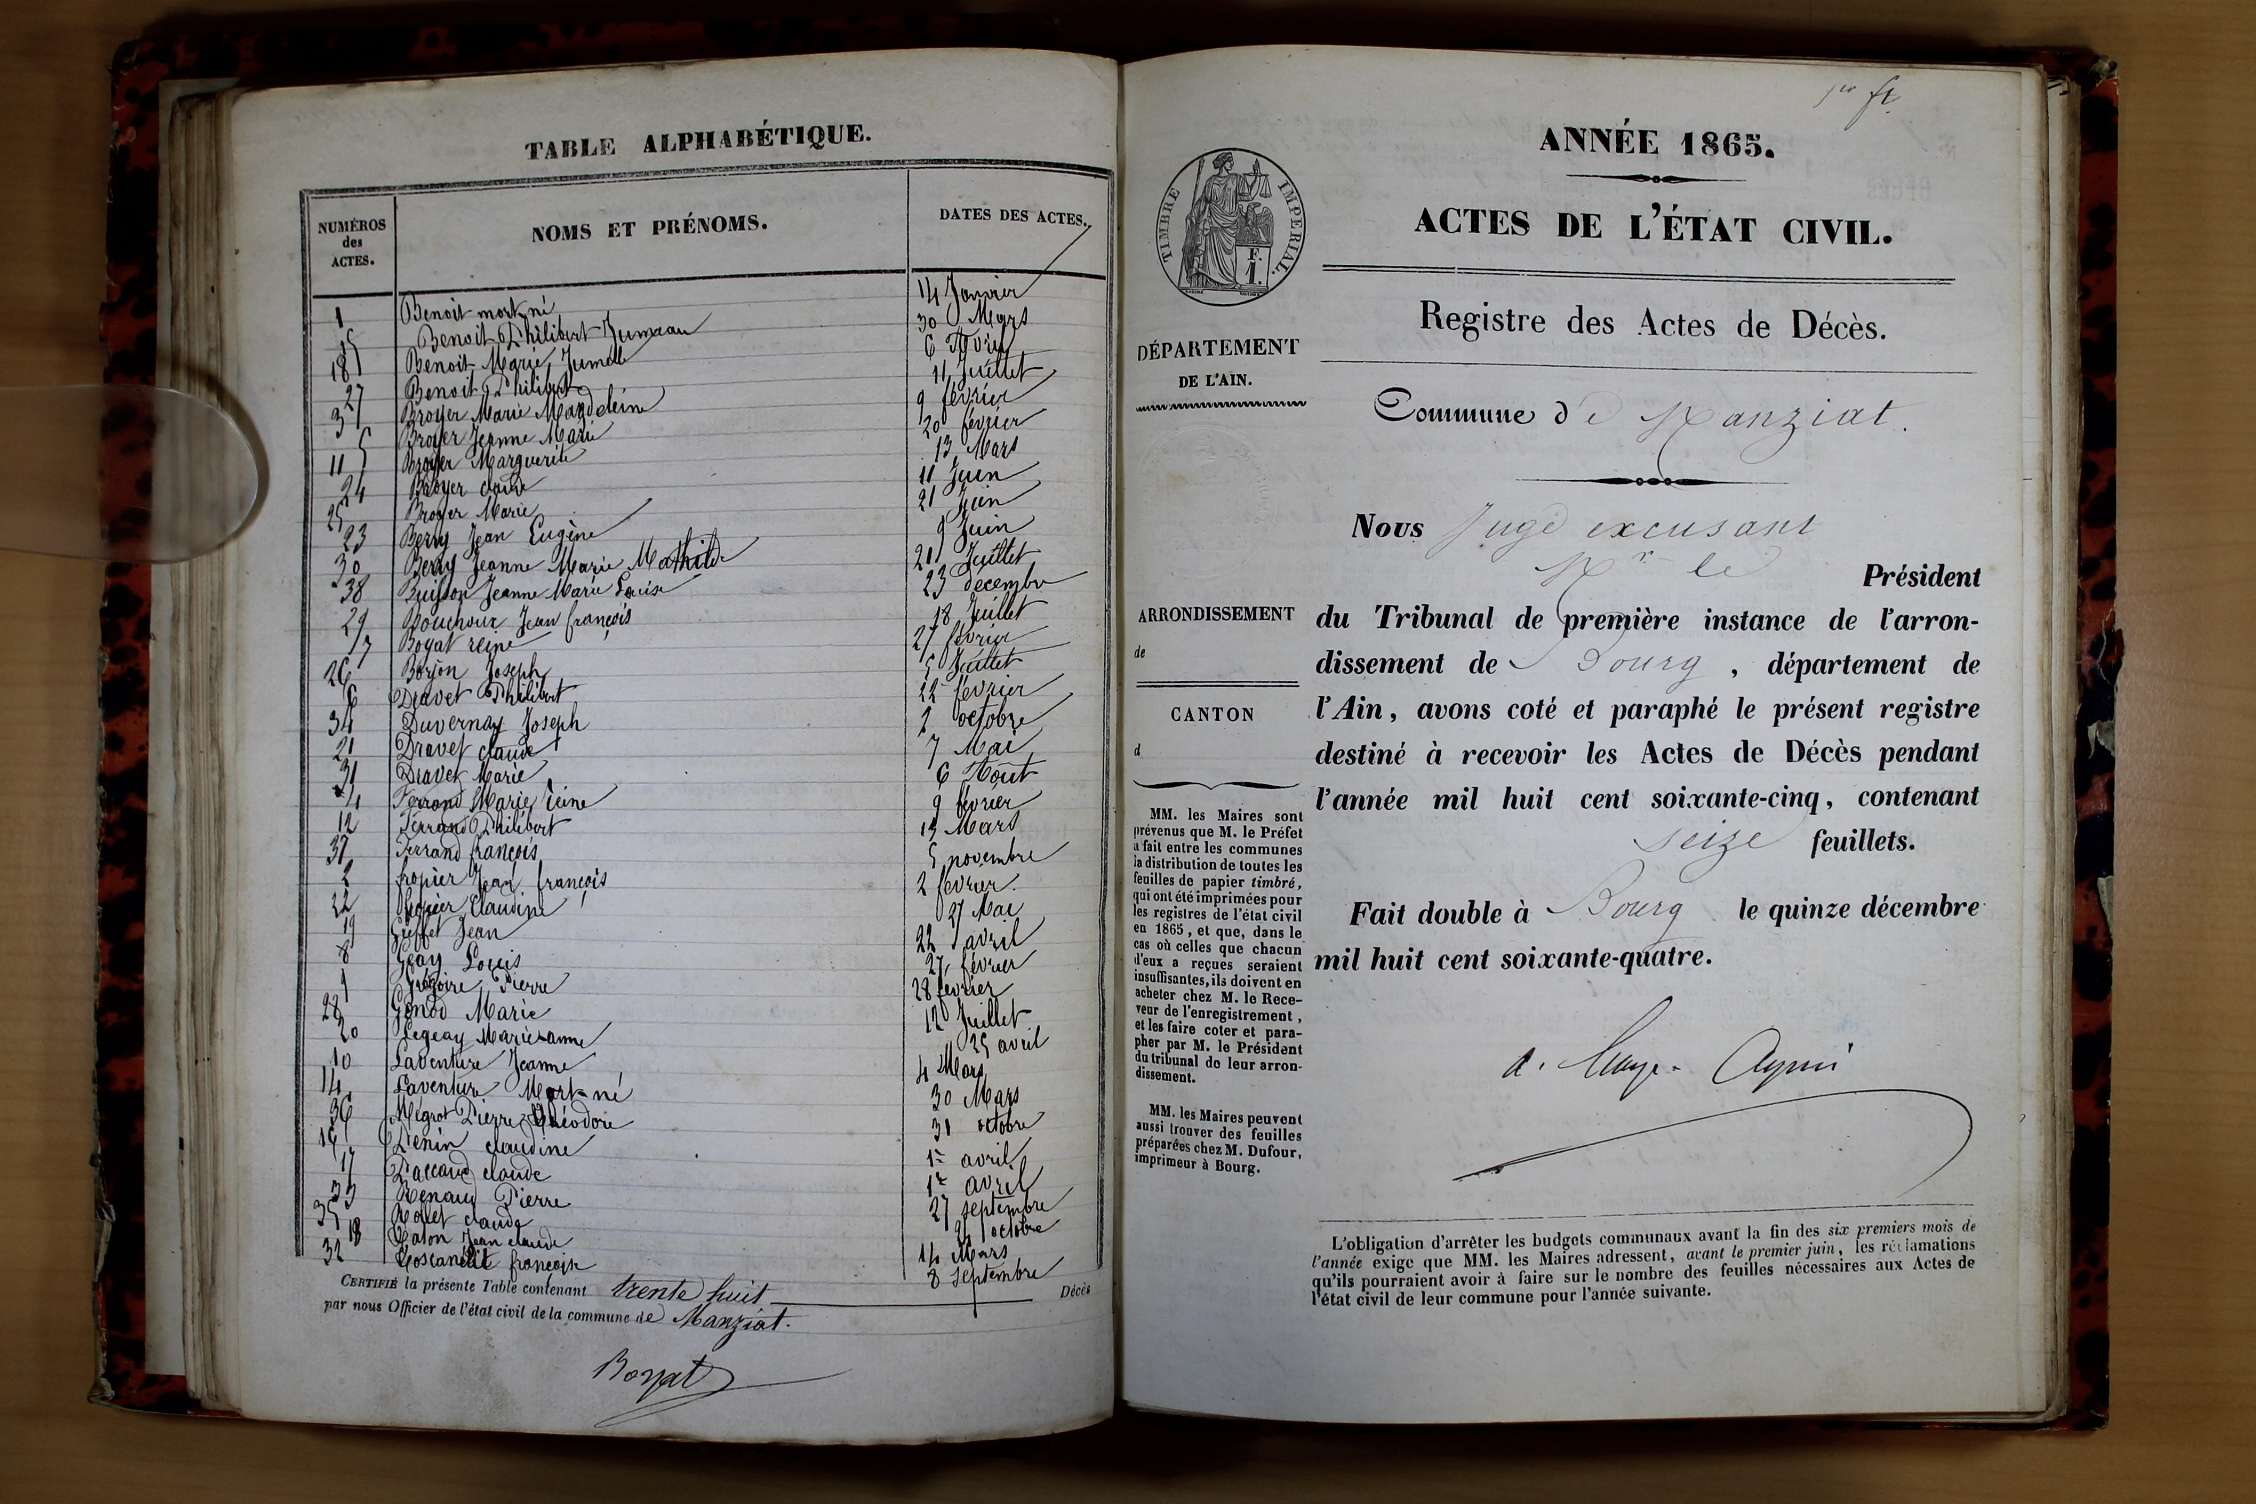 TABLE ALPHABÉTIQUE.
NUMÉROS des ACTES. NOMS ET PRÉNOMS. DATES DES ACTES.
1 Benoit mort né 14 Janvier
15 Benoit Philibert Jumeau 30 Mars
18 Benoit Marie Jumelle 6 Avril
27 Benoit Philibert 11 Juillet
3 Broyer Marie Magdeleine 9 février
5 Broyer Jeanne Marie 20 février
11 Broyer Marguerite 13 Mars
24 Broyer claude 11 Juin
25 Broyer Marie 21 Juin
23 Berry Jean Eugène 9 Juin
30 Berry Jeanne Marie Mathilde 21 Juillet
38 Buisson Jeanne Marie Louise 23 decembre
29 Bouchoux Jean françois 18 Juillet
7 Boyat reine 27 février
26 Borjon Joseph 5 Juillet
6 Dravet Philibert 22 février
34 Duvernay Joseph 2 octobre
21 Dravet claude 7 Mai
31 Dravet Marie 6 Aout
4 Ferrand Marie reine 9 février
12 Ferrand Philibert 13 Mars
37 Ferrand françois 5 novembre
2 fropier Jean françois 2 février.
22 fropier Claudine 27 Mai
19 Greffet Jean 22 avril
8 Geay Louis 27 février
9 Grégoire Pierre 28 février
28 Genod Marie 12 Juillet
20 Legeay Marie-anne 25 avril
10 Laventure Jeanne 4 Mars
14 Laventure Mort-né 30 Mars
36 Négrot Pierre Théodore 31 octobre
16 Penin claudine 1er avril
17 Paccaud claude 1er avril
33 Renaud Pierre 27 septembre
35 Rollet claude octobre
13 Caton Jean claude 14 Mars
32 françoise 8 septembre
CERTIFIÉ la présente Table contenant trente huit Décès
par nous Officier de l'état civil de la commune de Manziat.
Boyat
1er ft.
ANNÉE 1865.
ACTES DE L'ÉTAT CIVIL.
TIMBRE IMPERIAL.
F. 1.
Registre des Actes de Décès.
DÉPARTEMENT
DE L'AIN.
Commune de Manziat.
Nous Juge excusant
Mr le Président
ARRONDISSEMENT
de
CANTON
d
du Tribunal de première instance de l'arron-
dissement de Bourg, département de
l'Ain, avons coté et paraphé le présent registre
destiné à recevoir les Actes de Décès pendant
l'année mil huit cent soixante-cinq, contenant
seize feuillets.
Fait double à Bourg le quinze décembre
mil huit cent soixante-quatre.
MM. les Maires sont
prévenus que M. le Préfet
a fait entre les communes
la distribution de toutes les
feuilles de papier timbré,
qui ont été imprimées pour
les registres de l'état civil
en 1865, et que, dans le
cas où celles que chacun
d'eux a reçues seraient
insuffisantes, ils doivent en
acheter chez M. le Rece-
veur de l'enregistrement,
et les faire coter et para-
pher par M. le Président
du tribunal de leur arron-
dissement.
MM. les Maires peuvent
aussi trouver des feuilles
préparées chez M. Dufour,
imprimeur à Bourg.
L'obligation d'arrêter les budgets communaux avant la fin des six premiers mois de
l'année exige que MM. les Maires adressent, avant le premier juin, les réclamations
qu'ils pourraient avoir à faire sur le nombre des feuilles nécessaires aux Actes de
l'état civil de leur commune pour l'année suivante.